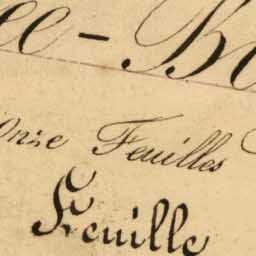 ee - B
onze Feuilles
Feuille